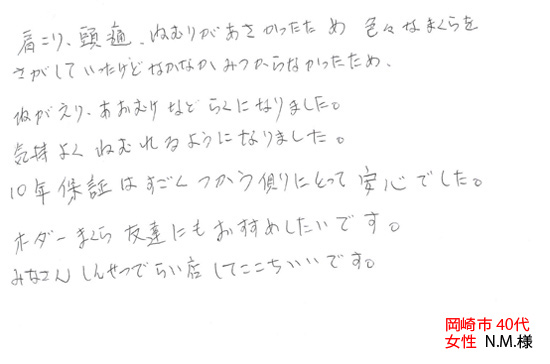 肩こり、頭痛、ねむりがあさかったため 色々なまくらを
さがしていったけどなかなかみつからなかったため、
ねがえり、あおむけなどらくになりました。
気持よくねむれるようになりました。
10年保証はすごくつかう側りにとって安心でした。
オーダーまくら友達にもおすすめしたいです。
みなさんしんせつでらい店してここちいいです。
岡崎市 40代
女性 N.M.様